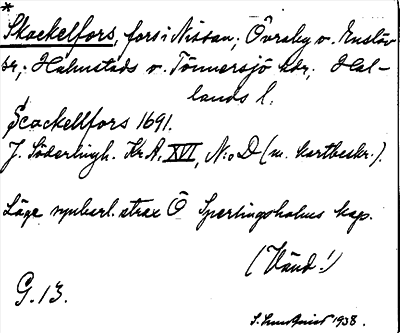 *
Skackelfors, fors i Nissan, Övraby o. Enslöv
sr; Halmstads o. Tönnersjö hdr; Hal-
lands l.
Scackellfors 1691.
J. Söderlingh. Kr.A. XVI, N:o D (m. kartbeskr.).
Läge synbarl. strax Ö Sperlingsholms kap.
(Vänd!)
G.13.
1938.